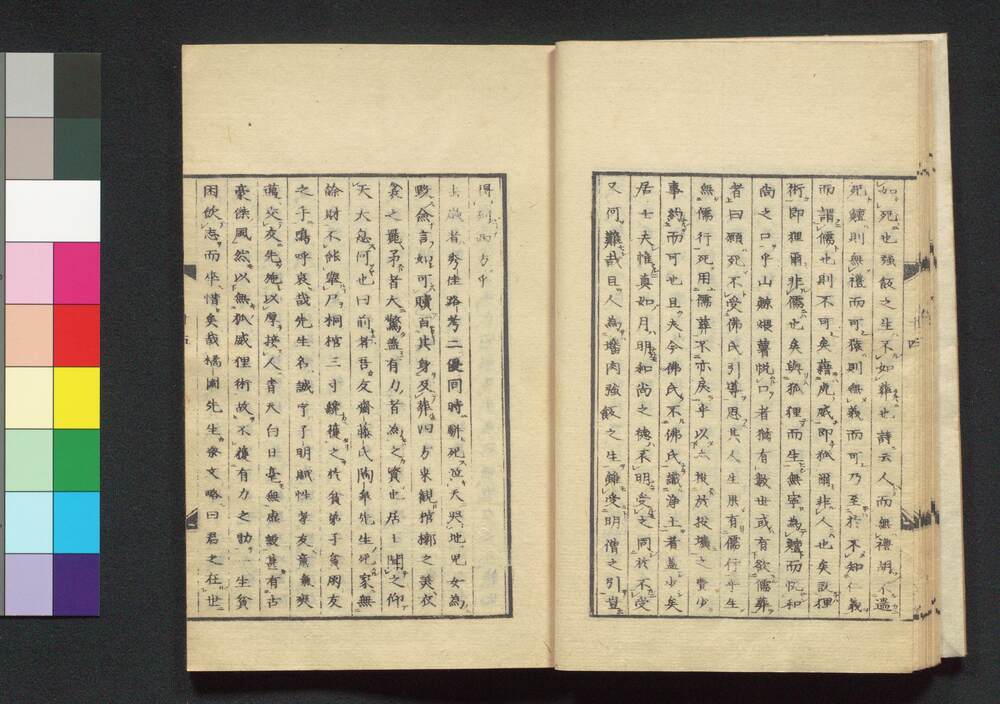 如死也強飯之生不如葬也詩云人而無禮胡不遄
死鱣則無禮而可強則無義而可乃至於不知仁義
而謂儒也則不可矣藉虎威即狐爾非人也矣訛狸
術即狸爾非儒也矣與狐狸而生無寧為鱣而悅和
尚之口乎山鯨煨薯悅口者猶有數世或有欲儒葬
者曰願死不受佛氏引導思其人生果有儒行乎生
無儒行死用儒葬不亦戾乎以之投於投壙之費少
事約而可也且夫今佛氏不佛氏識淨土者蓋少矣
居士夫惟真如月明和尚之德不明受之同於不受
又何難哉且人為墦肉強飯之生雖受明僧之引豈
得到西方乎
出啟者秀佳路考二優同時駢死泣天哭地兒女為
斂僉言如可贖百其身及葬四方來觀棺槨之美衣
衾之麗矛者大驚蓋有力者為之賓也居士聞之仰
天大息何也曰前者吾友齋藤氏陶皋先生死家無
餘財不能舉尸桐棺三寸纔獲之於貧弟子貧朋友
之手嗚呼哀哉先生名誠字子明賦性孝友亮兼爽
邁交友先施以厚接人青天白日毫無虛設甚有古
豪傑風然以無狐威狸術故不獲有力之助一生貧
困飲志而卒惜矣哉橘園先生祭文略曰君之在世